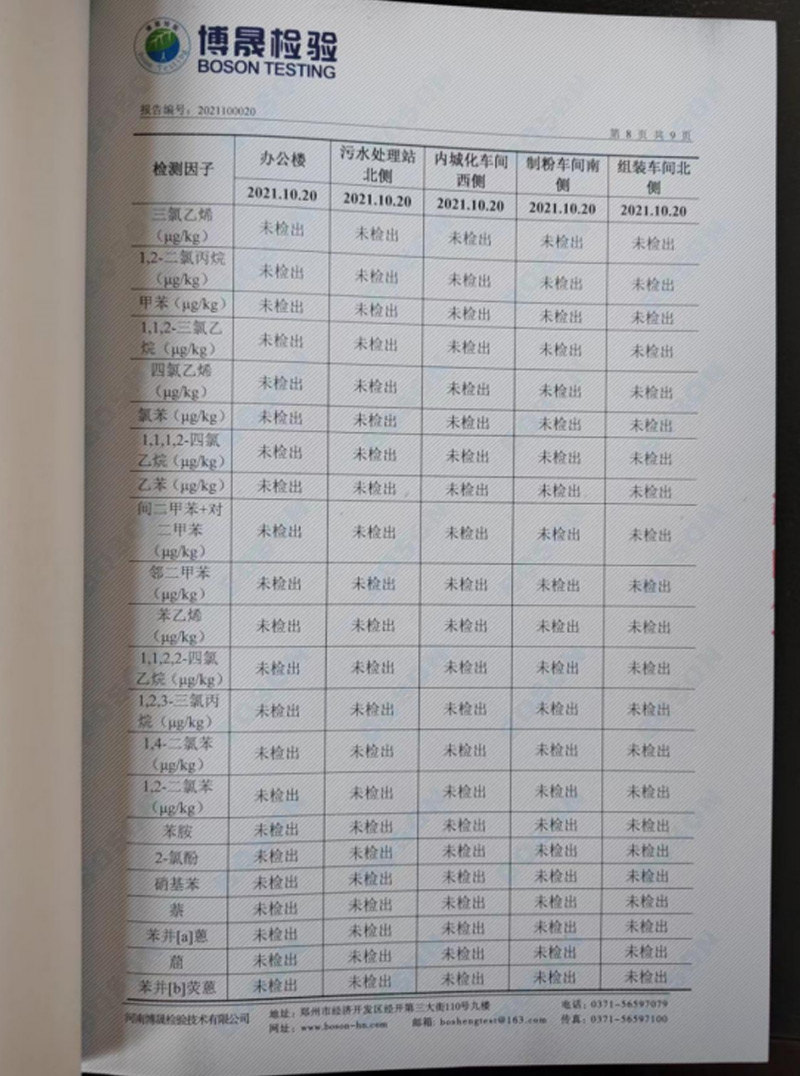 博晟检验
BOSON TESTING
报告编号：2021100020
第 8 页 共 9 页
检测因子 办公楼 污水处理站北侧 内城化车间西侧 制粉车间南侧 组装车间北侧
2021.10.20 2021.10.20 2021.10.20 2021.10.20 2021.10.20
三氯乙烯（μg/kg） 未检出 未检出 未检出 未检出 未检出
1,2-二氯丙烷（μg/kg） 未检出 未检出 未检出 未检出 未检出
甲苯（μg/kg） 未检出 未检出 未检出 未检出 未检出
1,1,2-三氯乙烷（μg/kg） 未检出 未检出 未检出 未检出 未检出
四氯乙烯（μg/kg） 未检出 未检出 未检出 未检出 未检出
氯苯（μg/kg） 未检出 未检出 未检出 未检出 未检出
1,1,1,2-四氯乙烷（μg/kg） 未检出 未检出 未检出 未检出 未检出
乙苯（μg/kg） 未检出 未检出 未检出 未检出 未检出
间二甲苯+对二甲苯（μg/kg） 未检出 未检出 未检出 未检出 未检出
邻二甲苯（μg/kg） 未检出 未检出 未检出 未检出 未检出
苯乙烯（μg/kg） 未检出 未检出 未检出 未检出 未检出
1,1,2,2-四氯乙烷（μg/kg） 未检出 未检出 未检出 未检出 未检出
1,2,3-三氯丙烷（μg/kg） 未检出 未检出 未检出 未检出 未检出
1,4-二氯苯（μg/kg） 未检出 未检出 未检出 未检出 未检出
1,2-二氯苯（μg/kg） 未检出 未检出 未检出 未检出 未检出
苯胺 未检出 未检出 未检出 未检出 未检出
2-氯酚 未检出 未检出 未检出 未检出 未检出
硝基苯 未检出 未检出 未检出 未检出 未检出
萘 未检出 未检出 未检出 未检出 未检出
苯并[a]蒽 未检出 未检出 未检出 未检出 未检出
䓛 未检出 未检出 未检出 未检出 未检出
苯并[b]荧蒽 未检出 未检出 未检出 未检出 未检出
河南博晟检验技术有限公司 地址：郑州市经济开发区经开第三大街110号九楼 电话：0371-56597079
网址：www.boson-hn.com 邮箱：boshengtest@163.com 传真：0371-56597100